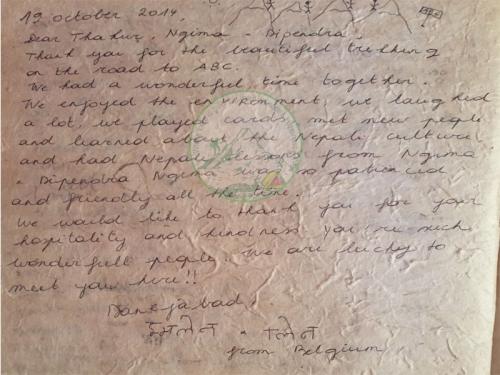 19 october 2014.
Dear Thakur, Ngima - Dipendra.
Thank you for the beautiful trekking
on the road to ABC.
We had a wonderful time together.
We enjoyed the enVIRONment, we laughed
a lot, we played cards, met new people
and learned about the Nepali culture
and had Nepali lessons from Ngima
- Dipendra Ngima was so patienced
and friendly all the time.
We would like to thank you for your
hospitality and kindness you're such
wonderfull people. We are lucky to
meet you here!!
Danejabad
from Belgium